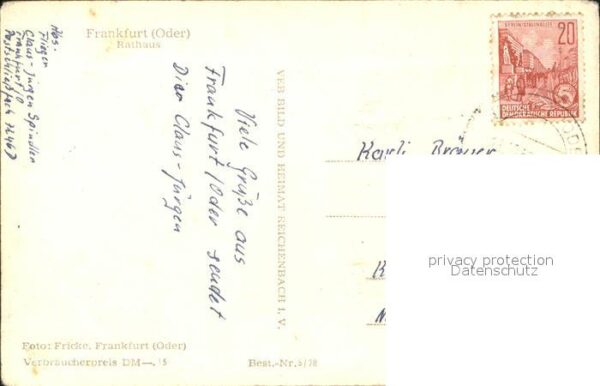 Abs.
Flieger
Claus-Jürgen Spindler
Frankfurt/O
Postschließfach 76467
Frankfurt (Oder)
Rathaus
Viele Grüße aus
Frankfurt/Oder sendet
Dir Claus-Jürgen
VEB BILD UND HEIMAT REICHENBACH I. V.
BERLIN/STALINALLEE
20
5
DEUTSCHE
DEMOKRATISCHE REPUBLIK
Karli
privacy protection
Datenschutz
Foto: Fricke, Frankfurt (Oder)
Verbraucherpreis DM —.15
Best.-Nr. 5/78